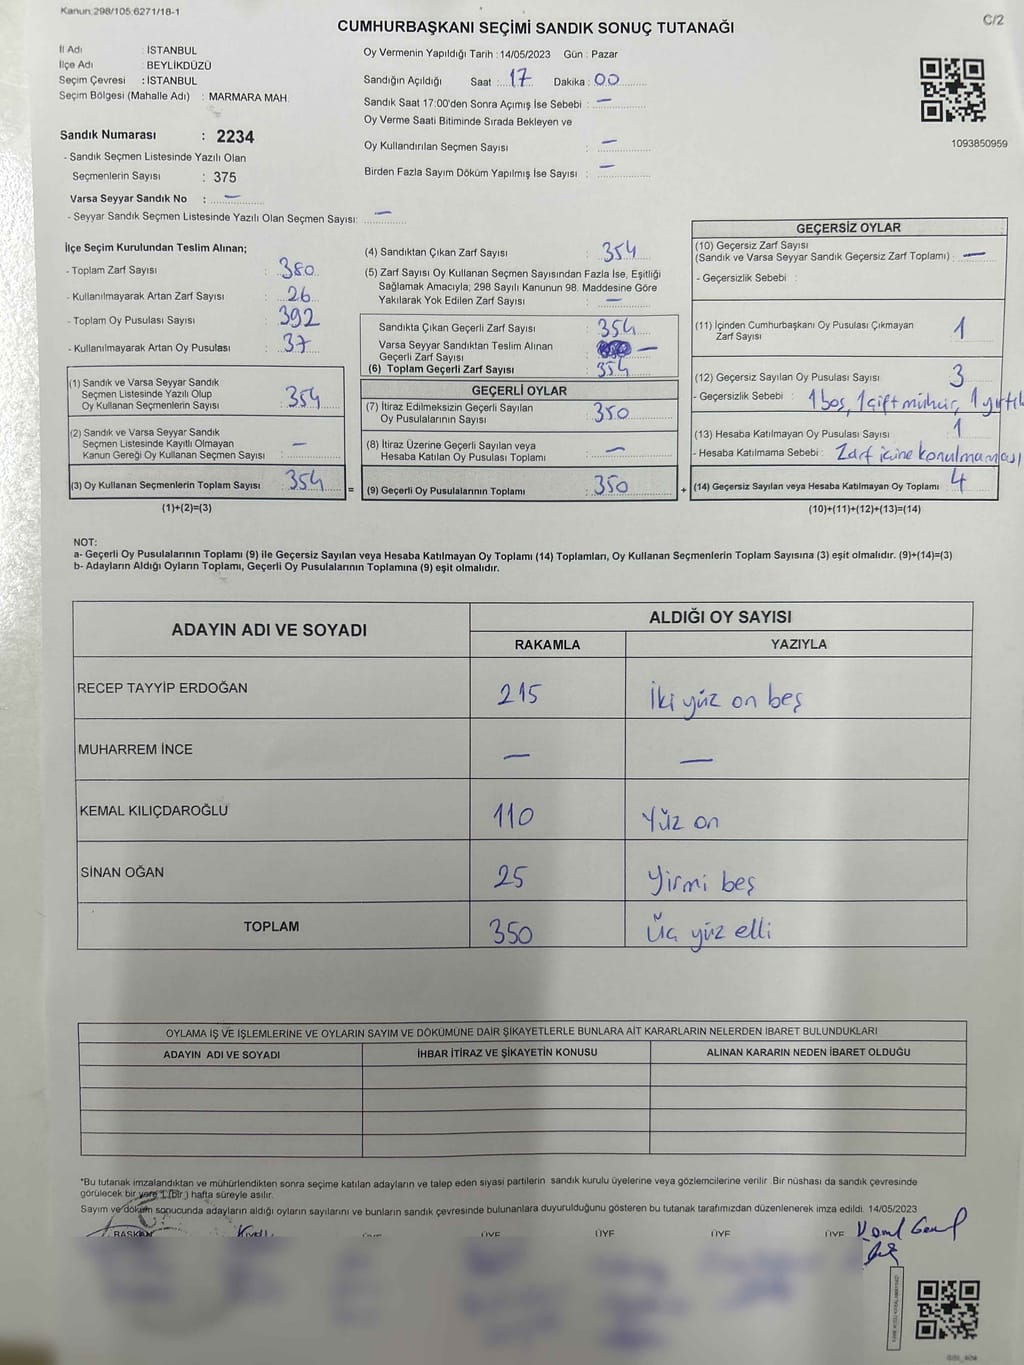 Kanun:298/105;6271/18-1
C/2
CUMHURBAŞKANI SEÇİMİ SANDIK SONUÇ TUTANAĞI
İl Adı : İSTANBUL
İlçe Adı : BEYLİKDÜZÜ
Seçim Çevresi : İSTANBUL
Seçim Bölgesi (Mahalle Adı) : MARMARA MAH.
Sandık Numarası : 2234
- Sandık Seçmen Listesinde Yazılı Olan
Seçmenlerin Sayısı : 375
Varsa Seyyar Sandık No : —
- Seyyar Sandık Seçmen Listesinde Yazılı Olan Seçmen Sayısı: —
Oy Vermenin Yapıldığı Tarih : 14/05/2023 Gün : Pazar
Sandığın Açıldığı Saat : 17 Dakika : 00
Sandık Saat 17:00'den Sonra Açımış İse Sebebi : —
Oy Verme Saati Bitiminde Sırada Bekleyen ve
Oy Kullandırılan Seçmen Sayısı : —
Birden Fazla Sayım Döküm Yapılmış İse Sayısı : —
1093850959
İlçe Seçim Kurulundan Teslim Alınan;
- Toplam Zarf Sayısı : 380
- Kullanılmayarak Artan Zarf Sayısı : 26
- Toplam Oy Pusulası Sayısı : 392
- Kullanılmayarak Artan Oy Pusulası : 37
(1) Sandık ve Varsa Seyyar Sandık
Seçmen Listesinde Yazılı Olup
Oy Kullanan Seçmenlerin Sayısı : 354
(2) Sandık ve Varsa Seyyar Sandık
Seçmen Listesinde Kayıtlı Olmayan
Kanun Gereği Oy Kullanan Seçmen Sayısı : —
(3) Oy Kullanan Seçmenlerin Toplam Sayısı : 354 =
(1)+(2)=(3)
(4) Sandıktan Çıkan Zarf Sayısı : 354
(5) Zarf Sayısı Oy Kullanan Seçmen Sayısından Fazla İse, Eşitliği
Sağlamak Amacıyla; 298 Sayılı Kanunun 98. Maddesine Göre
Yakılarak Yok Edilen Zarf Sayısı : —
Sandıkta Çıkan Geçerli Zarf Sayısı : 354
Varsa Seyyar Sandıktan Teslim Alınan
Geçerli Zarf Sayısı : —
(6) Toplam Geçerli Zarf Sayısı : 354
GEÇERLİ OYLAR
(7) İtiraz Edilmeksizin Geçerli Sayılan
Oy Pusulalarının Sayısı : 350
(8) İtiraz Üzerine Geçerli Sayılan veya
Hesaba Katılan Oy Pusulası Toplamı : —
(9) Geçerli Oy Pusulalarının Toplamı : 350 +
GEÇERSİZ OYLAR
(10) Geçersiz Zarf Sayısı
(Sandık ve Varsa Seyyar Sandık Geçersiz Zarf Toplamı) : —
- Geçersizlik Sebebi :
(11) İçinden Cumhurbaşkanı Oy Pusulası Çıkmayan
Zarf Sayısı 1
(12) Geçersiz Sayılan Oy Pusulası Sayısı : 3
- Geçersizlik Sebebi : 1 boş, 1 çift mühür, 1 yırtık
(13) Hesaba Katılmayan Oy Pusulası Sayısı : 1
- Hesaba Katılmama Sebebi : Zarf içine konulmaması
(14) Geçersiz Sayılan veya Hesaba Katılmayan Oy Toplamı : 4
(10)+(11)+(12)+(13)=(14)
NOT:
a- Geçerli Oy Pusulalarının Toplamı (9) ile Geçersiz Sayılan veya Hesaba Katılmayan Oy Toplamı (14) Toplamları, Oy Kullanan Seçmenlerin Toplam Sayısına (3) eşit olmalıdır. (9)+(14)=(3)
b- Adayların Aldığı Oyların Toplamı, Geçerli Oy Pusulalarının Toplamına (9) eşit olmalıdır.
ADAYIN ADI VE SOYADI ALDIĞI OY SAYISI
RAKAMLA YAZIYLA
RECEP TAYYİP ERDOĞAN 215 İki yüz on beş
MUHARREM İNCE — —
KEMAL KILIÇDAROĞLU 110 Yüz on
SİNAN OĞAN 25 Yirmi beş
TOPLAM 350 Üç yüz elli
OYLAMA İŞ VE İŞLEMLERİNE VE OYLARIN SAYIM VE DÖKÜMÜNE DAİR ŞİKAYETLERLE BUNLARA AİT KARARLARIN NELERDEN İBARET BULUNDUKLARI
ADAYIN ADI VE SOYADI İHBAR İTİRAZ VE ŞİKAYETİN KONUSU ALINAN KARARIN NEDEN İBARET OLDUĞU
*Bu tutanak imzalandıktan ve mühürlendikten sonra seçime katılan adayların ve talep eden siyasi partilerin sandık kurulu üyelerine veya gözlemcilerine verilir. Bir nüshası da sandık çevresinde
görülecek bir yere 1 (bir) hafta süreyle asılır.
Sayım ve döküm sonucunda adayların aldığı oyların sayılarını ve bunların sandık çevresinde bulunanlara duyurulduğunu gösteren bu tutanak tarafımızdan düzenlenerek imza edildi. 14/05/2023
BAŞKAN ÜYE ÜYE ÜYE ÜYE ÜYE